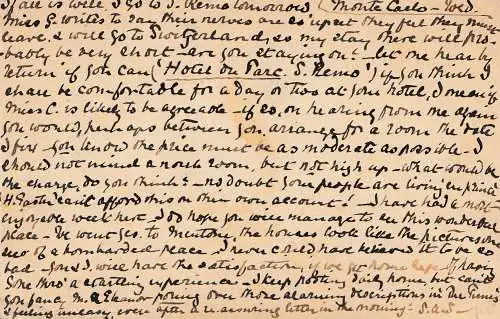 if all is well, I go to S. Remo tomorrow (Monte Carlo - Wed.
Miss G. writes to say their nerves are so upset they feel they must
leave. & will go to Switzerland, so my stay there will pro-
bably be very short - are you staying on? - let me hear by
return if you can ('Hotel du Parc. S. Remo') if you think I
shall be comfortable for a day or two at your hotel, I mean if
Miss C. is likely to be agreeable - if so, on hearing from me again
you would, perhaps between you, arrange for a room the date
I fix - you know the price must be as moderate as possible - I
should not mind a north room, but not high up - what would be
the charge, do you think? - no doubt your people are living en prince
H. can't afford this on their own account! - I have had a most
enjoyable week here - I do hope you will manage to see this wonderful
place - We went yes. to Mentone, the houses look like the pictures one
sees of a bombarded place - I never could have believed it to be so
bad - you & I will have the satisfaction, if we get home safe, of having
gone thro' a startling experience - I keep posting daily home, but can't
you fancy M. & Eleanor poring over those alarming descriptions in the Times
& feeling uneasy, even after a reassuring letter in the morning -